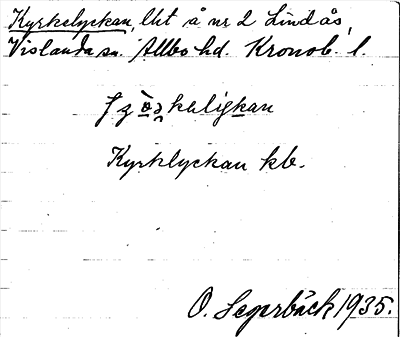 Kyrkelyckan, lht å nr 2 Lindås,
Vislanda sn. Allbo hd. Kronob. l.
Kyrklyckan kb.
O. Segerbäck 1935.